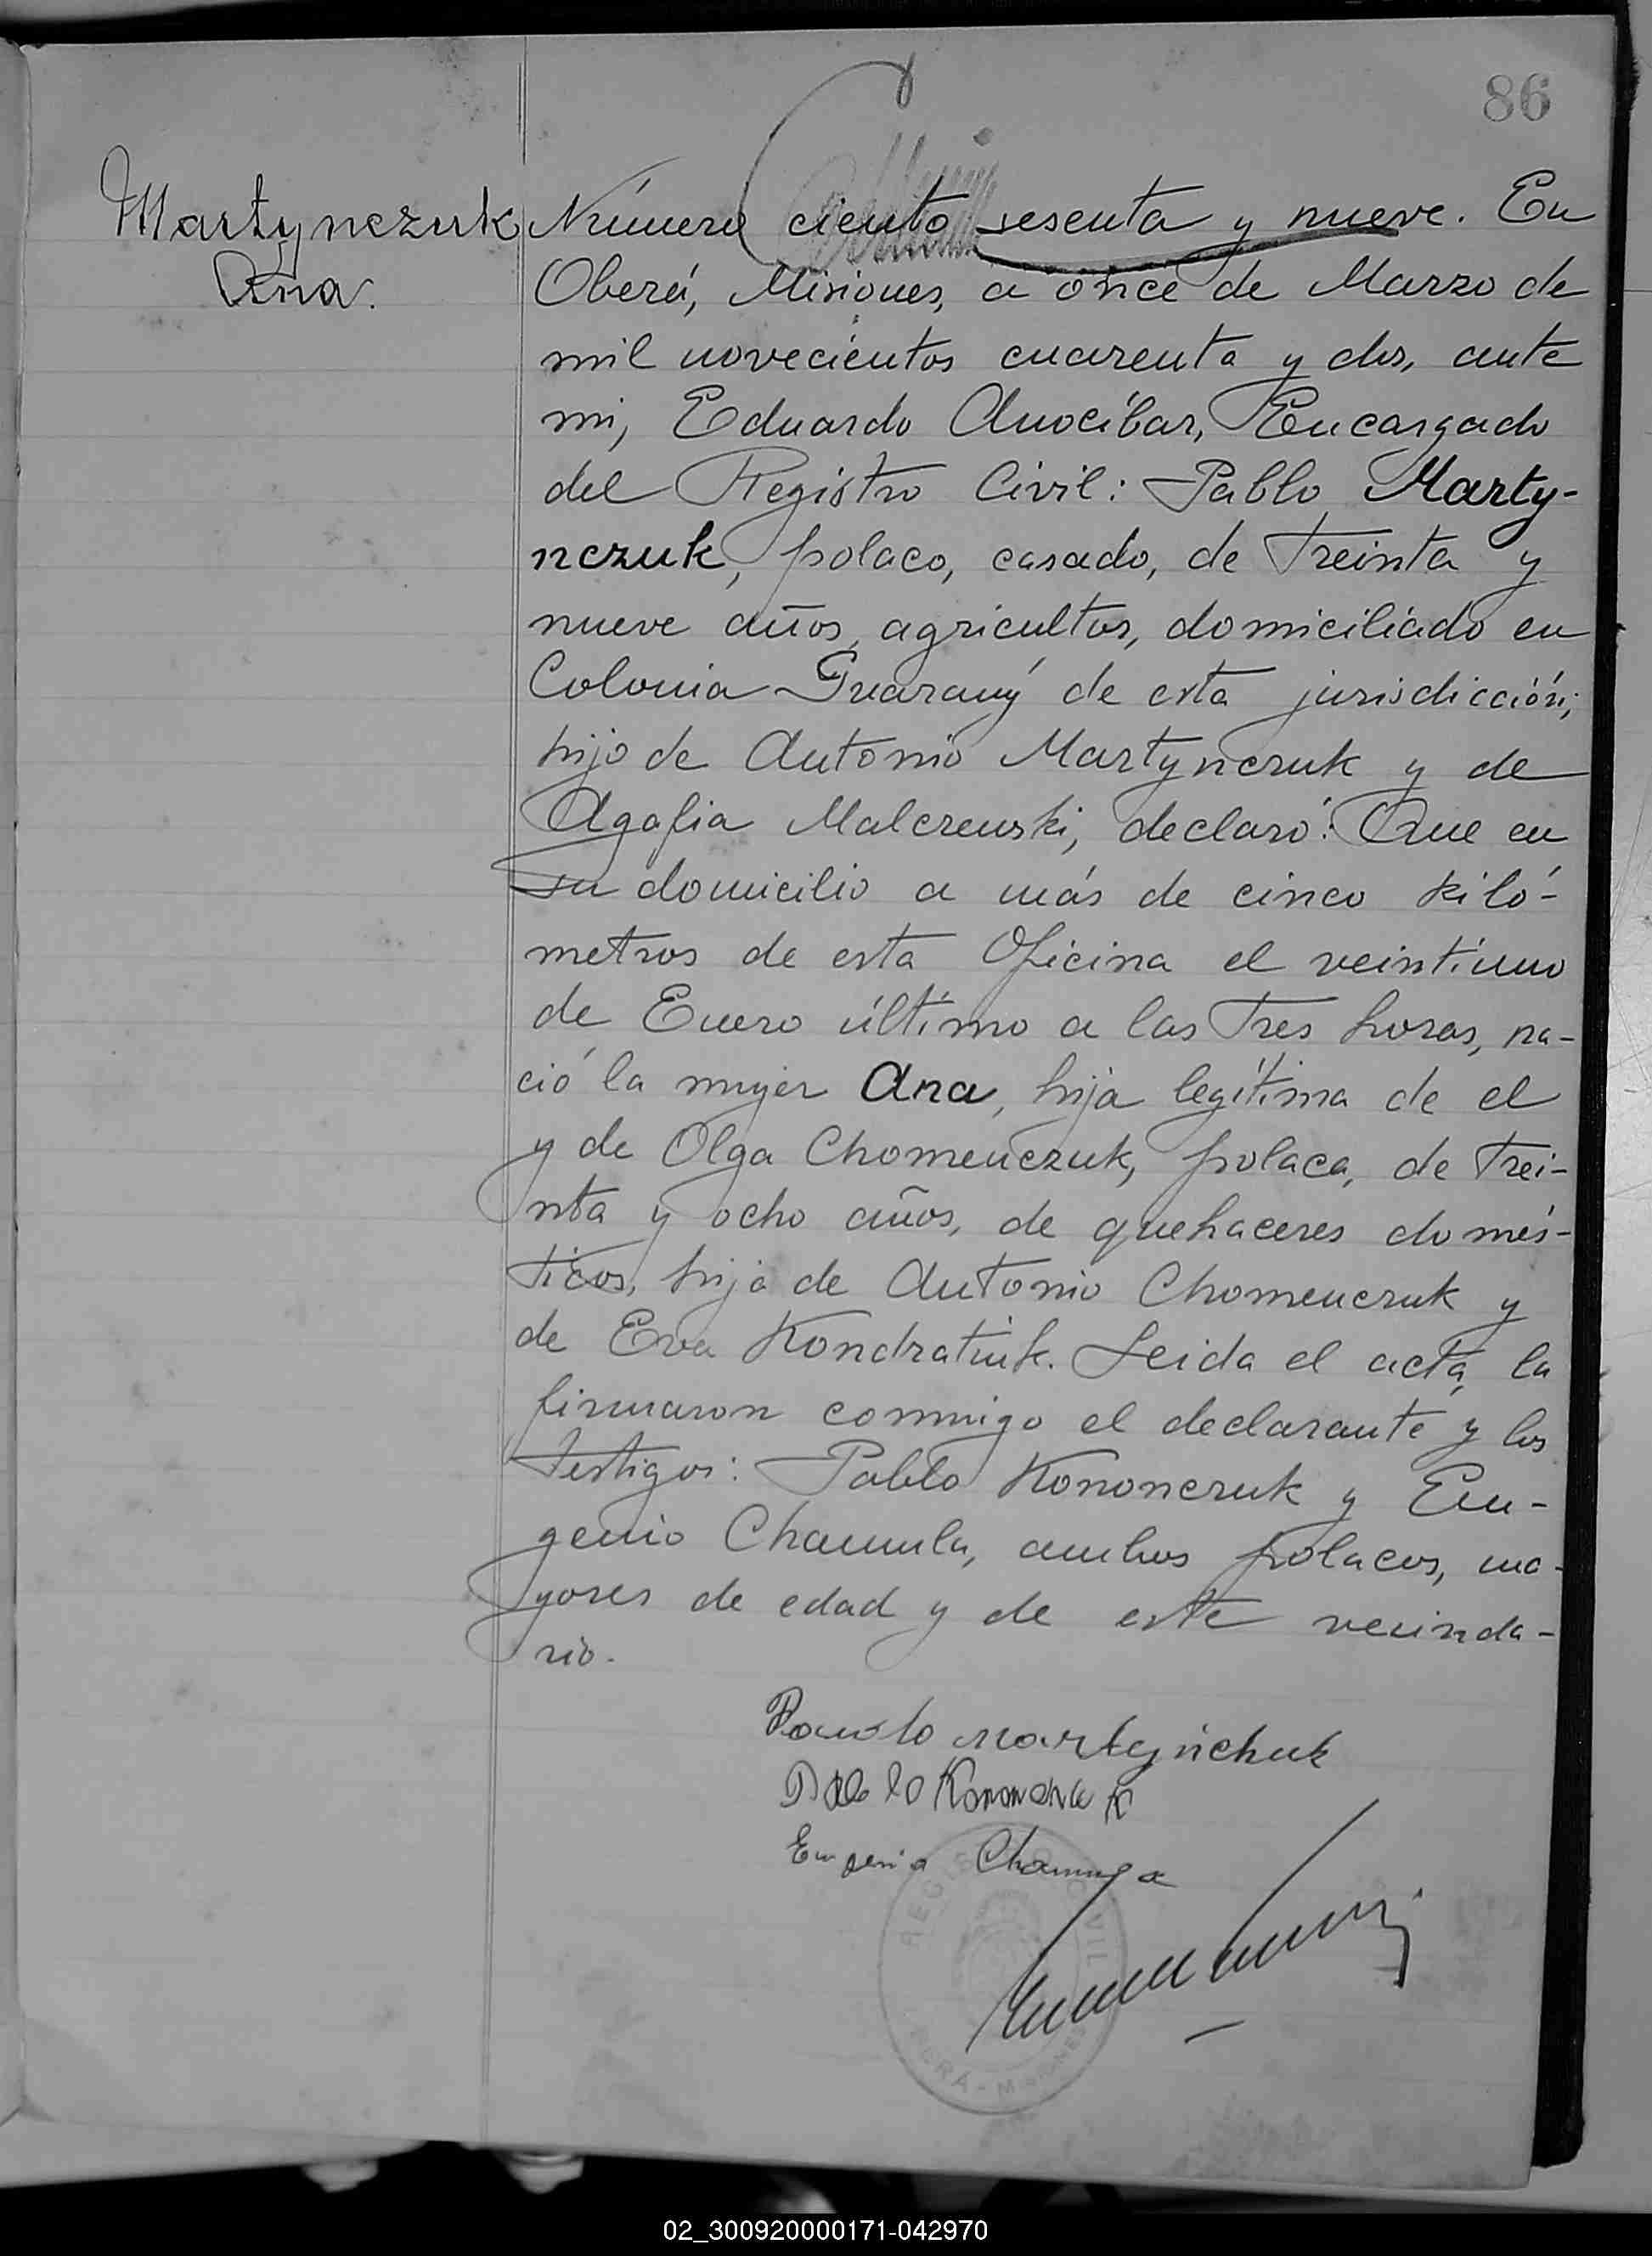 86
Martynczuk
Ana.
Número ciento sesenta y nueve. En
Oberá, Misiones, a once de Marzo de
mil novecientos cuarenta y dos, ante
mi, Eduardo Anocíbar, Encargado
del Registro Civil: Pablo Marty-
nczuk, polaco, casado, de treinta y
nueve años, agricultor, domiciliado en
Colonia Guaraný de esta jurisdicción;
hijo de Antonio Martynczuk y de
Agafia Malczewski, declaró: Que en
su domicilio a más de cinco kiló-
metros de esta Oficina el veintiuno
de Enero último a las tres horas, na-
ció la mujer Ana, hija legítima de el
y de Olga Chomenczuk, polaca, de trei-
nta y ocho años, de quehaceres domés-
ticos, hija de Antonio Chomenczuk y
de Eva Kondratiuk. Leida el acta, la
firmaron conmigo el declarante y los
testigos: Pablo Kononczuk y Eu-
genio Chamula, ambos polacos, ma-
yores de edad y de este vecinda-
rio.
Pawlo Martynchuk
Pablo Kononczuk
Eugenio Chamuła
REGISTRO CIVIL
OBERÁ - MISIONES
02_300920000171-042970